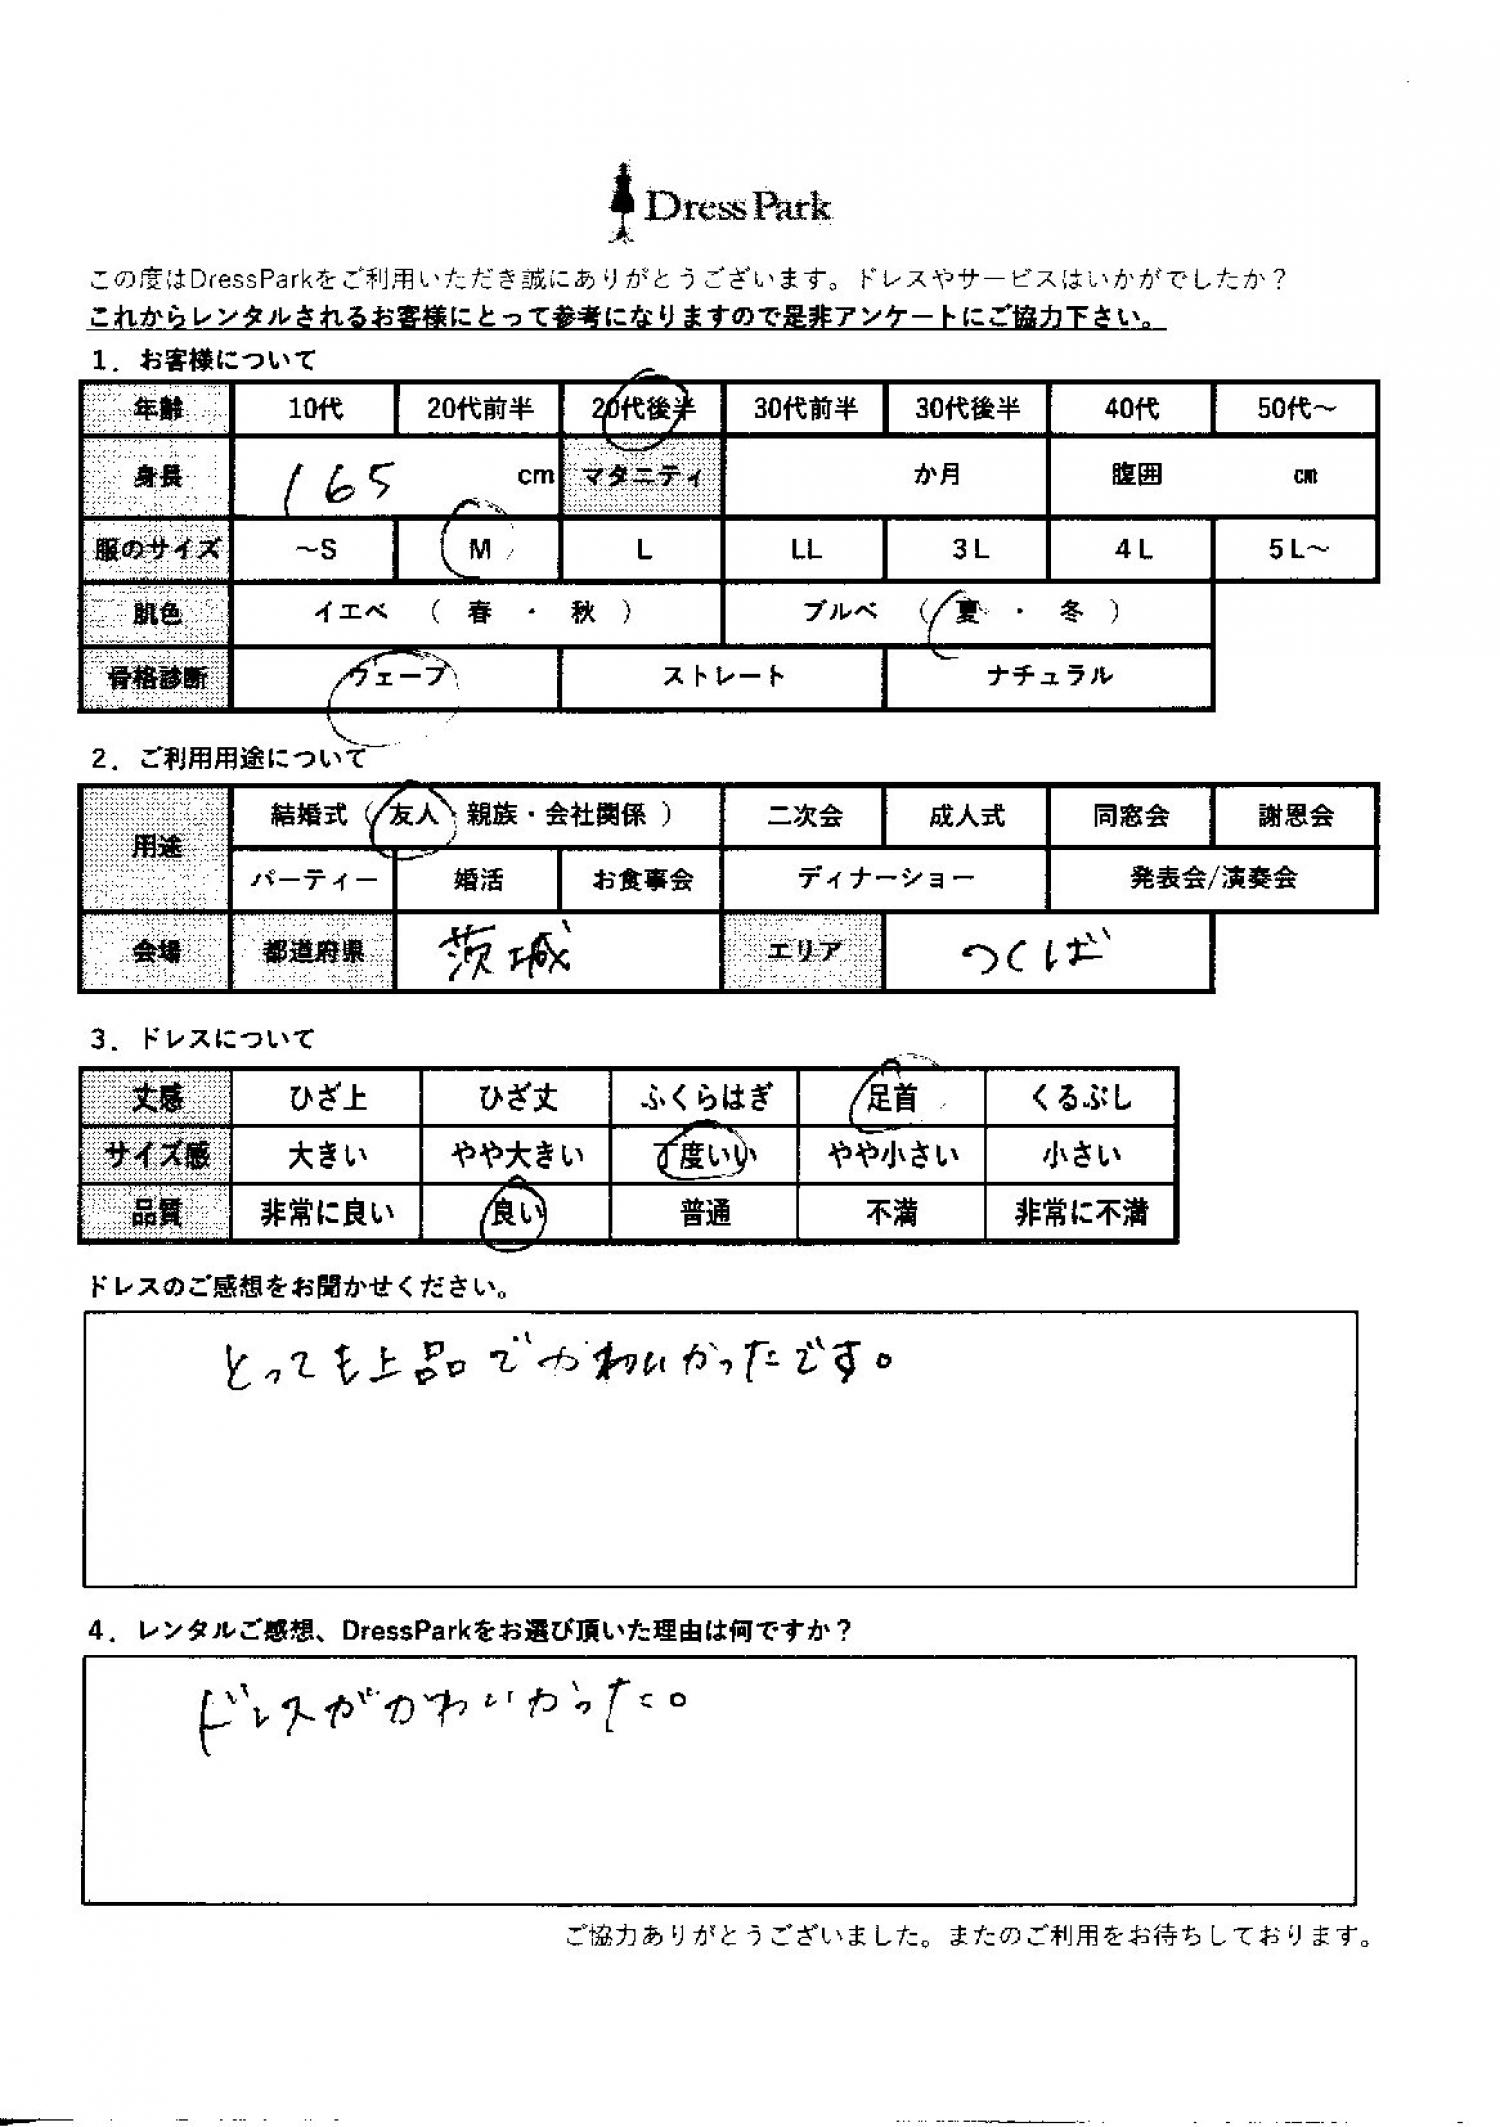 Dress Park
この度はDressParkをご利用いただき誠にありがとうございます。ドレスやサービスはいかがでしたか？
これからレンタルされるお客様にとって参考になりますので是非アンケートにご協力下さい。
1．お客様について
年齢 10代 20代前半 20代後半 30代前半 30代後半 40代 50代～
身長 165 cm マタニティ か月 腹囲 cm
服のサイズ ～S M L LL 3L 4L 5L～
肌色 イエベ （ 春 ・ 秋 ） ブルベ （ 夏 ・ 冬 ）
骨格診断 ウェーブ ストレート ナチュラル
2．ご利用用途について
用途 結婚式（ 友人・親族・会社関係 ） 二次会 成人式 同窓会 謝恩会
パーティー 婚活 お食事会 ディナーショー 発表会/演奏会
会場 都道府県 茨城 エリア つくば
3．ドレスについて
丈感 ひざ上 ひざ丈 ふくらはぎ 足首 くるぶし
サイズ感 大きい やや大きい 丁度いい やや小さい 小さい
品質 非常に良い 良い 普通 不満 非常に不満
ドレスのご感想をお聞かせください。
とっても上品でかわいかったです。
4．レンタルご感想、DressParkをお選び頂いた理由は何ですか？
ドレスがかわいかった。
ご協力ありがとうございました。またのご利用をお待ちしております。